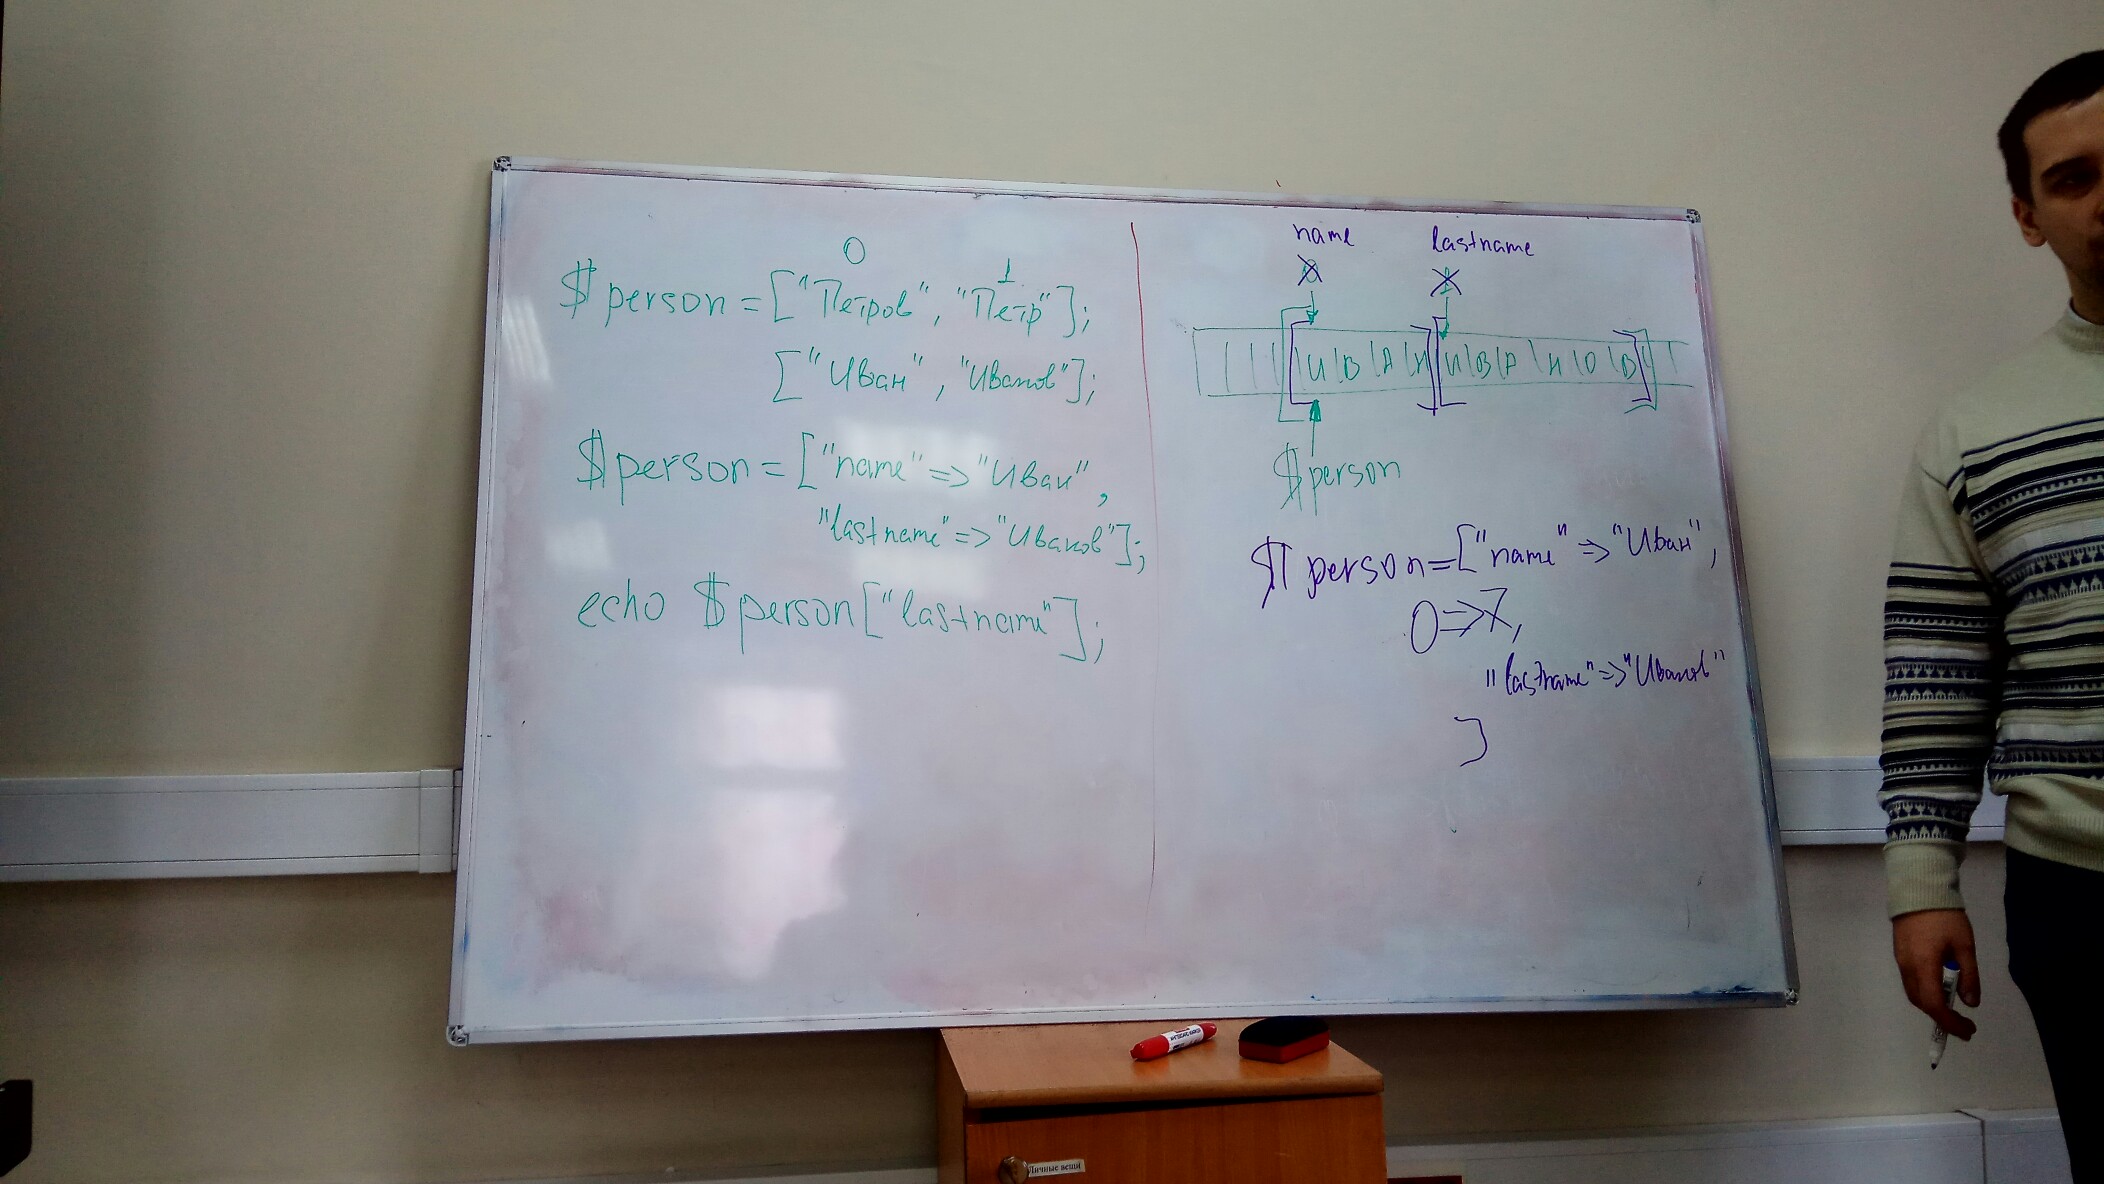 0 1
$person = ["Петров", "Петр"];
["Иван", "Иванов"];
$person = ["name" => "Иван",
"lastname" => "Иванов"];
echo $person["lastname"];
name lastname
0 1
И В А Н И В А Н О В
$person
$person = ["name" => "Иван",
0 => 7,
"lastname" => "Иванов"
]
Личные вещи